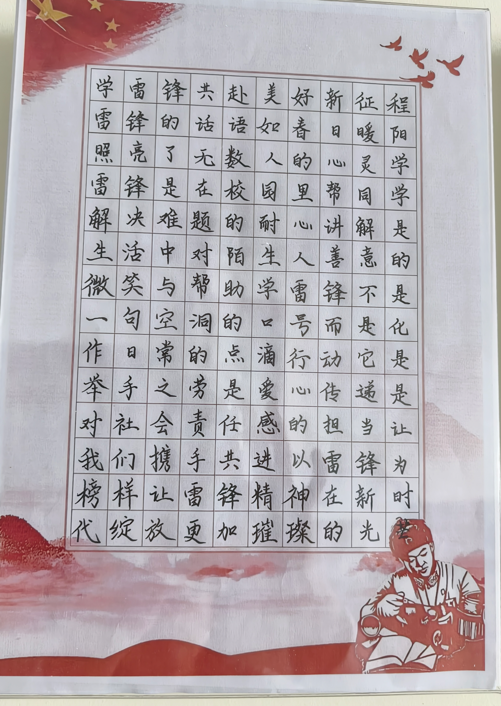 学雷锋共赴美好新征程
雷锋的话语如春日暖阳
照亮了无数人的心灵学
雷锋是在校园里帮同学
解决难题的耐心讲解是
生活中对陌生人善意的
微笑与帮助学雷锋不是
一句空洞的口号而是化
作日常的点滴行动它是
举手之劳是爱心传递是
对社会责任感的担当让
我们携手共进以雷锋为
榜样让雷锋精神在新时
代绽放更加璀璨的光